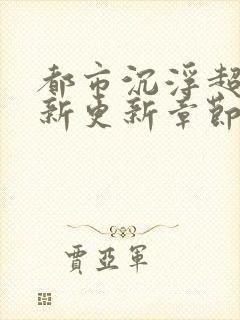 都市沉浮超
新更新章節
賈亞軍